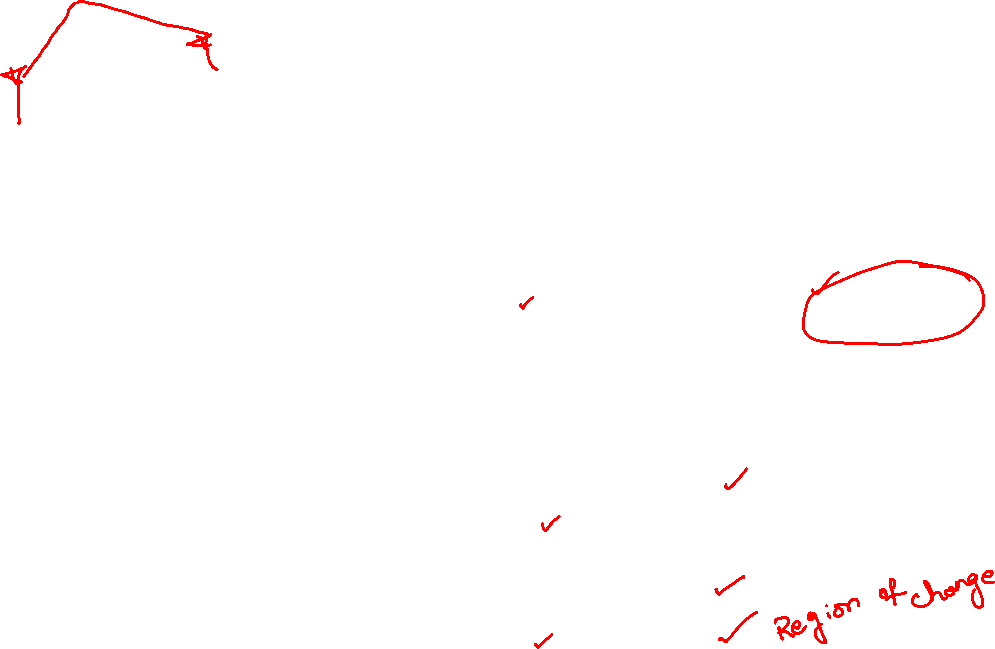 Region of change